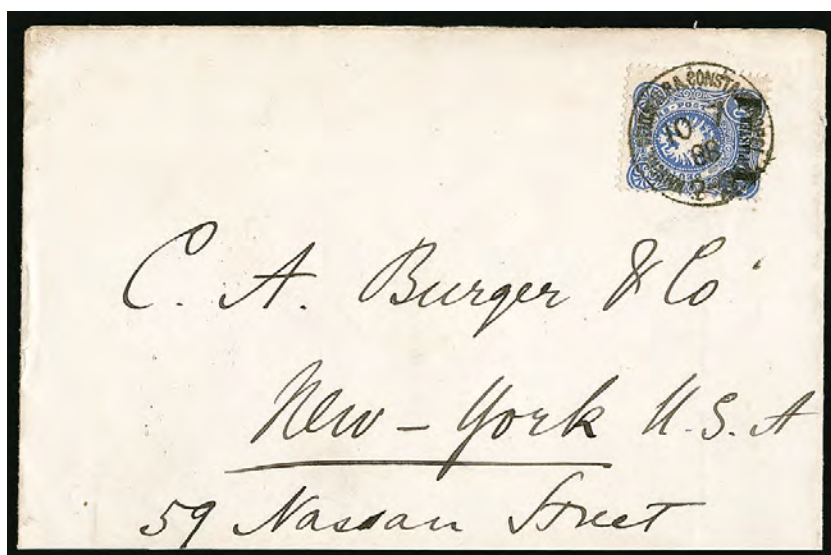 CONSTA
10 7
88
C. A. Burger & Co
New-York U.S.A
59 Nassau Street